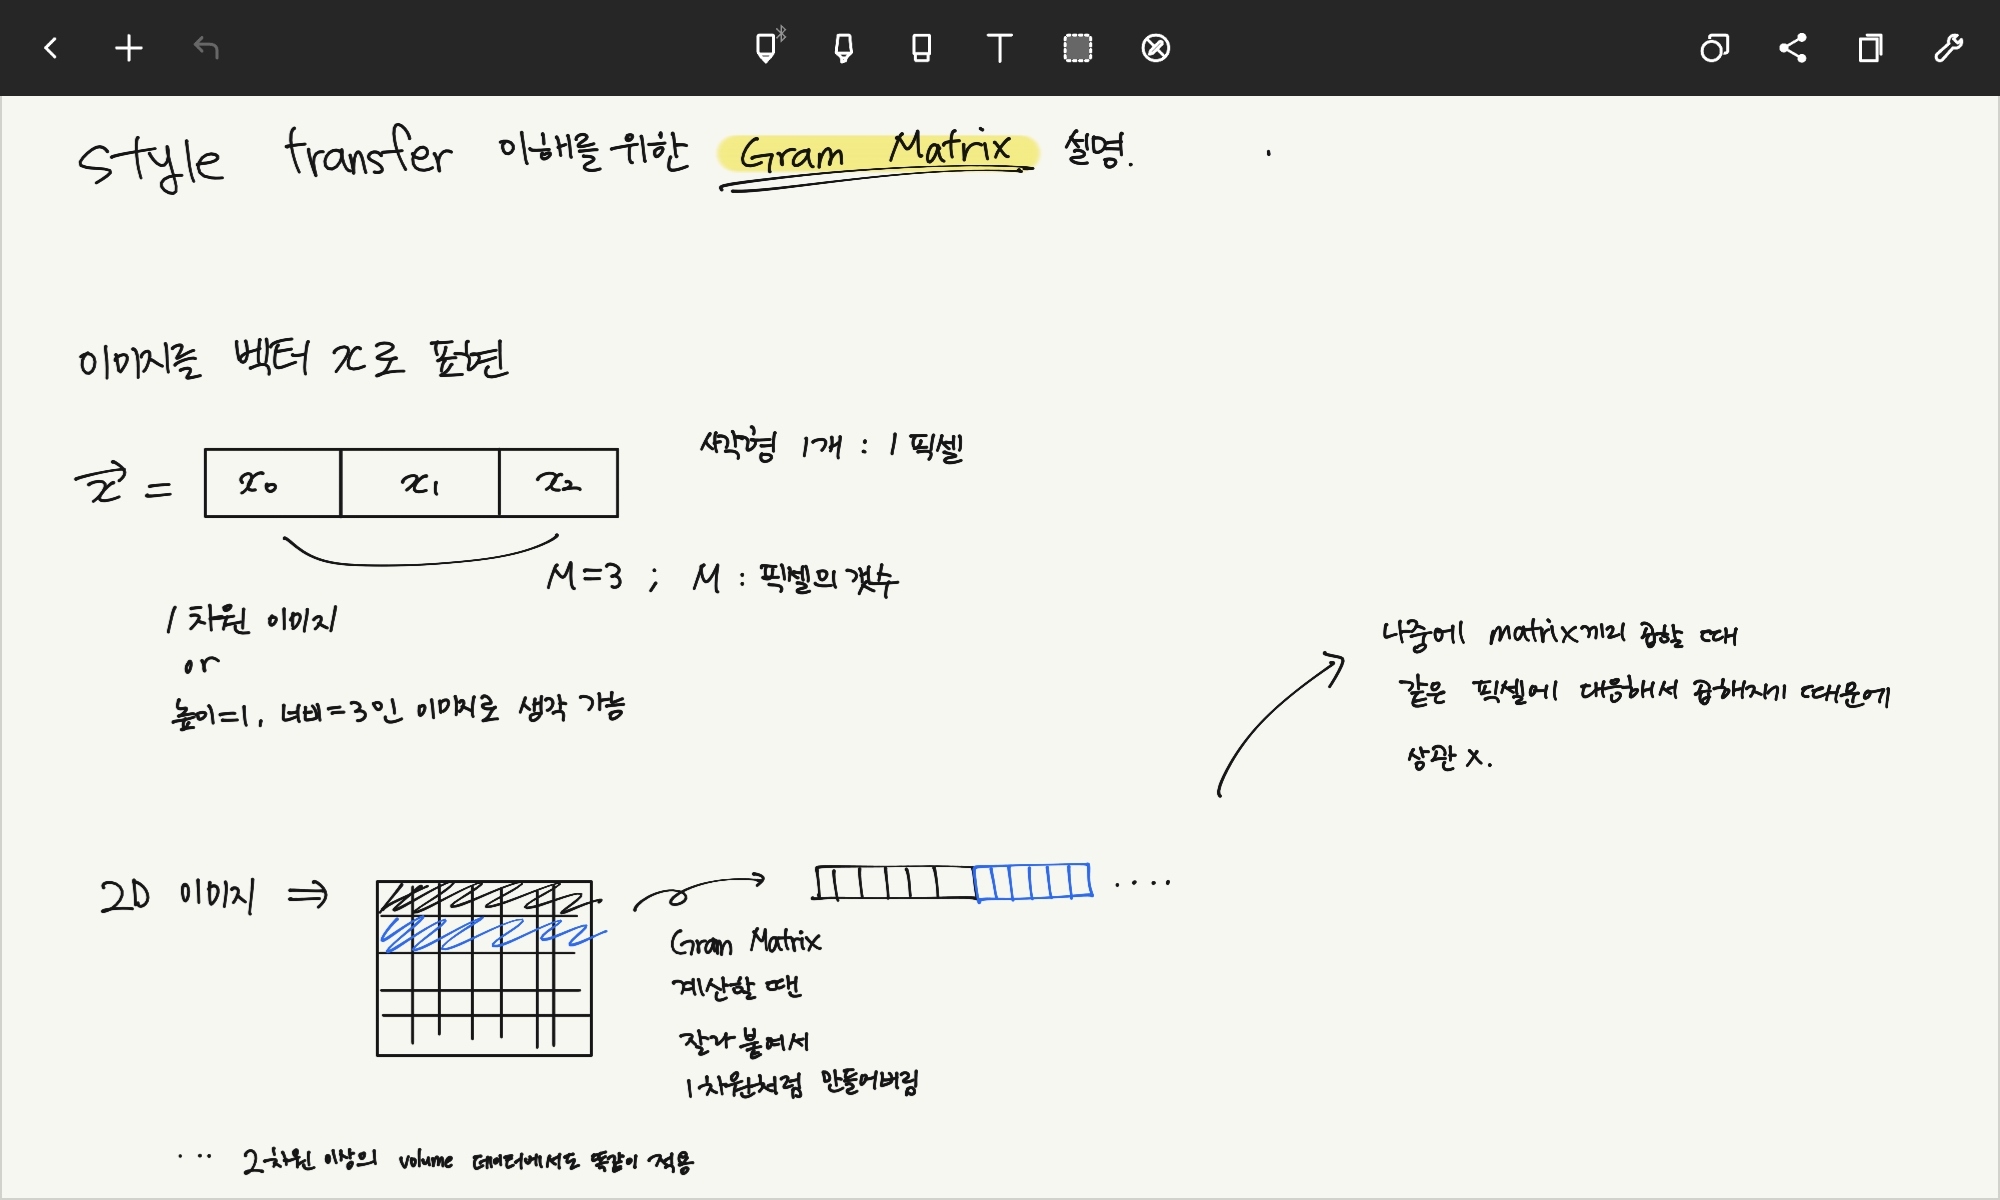 style transfer 이해를 위한 Gram Matrix 설명.
이미지를 벡터 x로 표현
x = x₀ x₁ x₂
사각형 1개 : 1 픽셀
M=3 ; M : 픽셀의 갯수
1차원 이미지
or
높이=1, 너비=3인 이미지로 생각 가능
나중에 matrix끼리 곱할 때
같은 픽셀에 대응해서 곱해지기 때문에
상관 x.
2D 이미지 ⇒
....
Gram Matrix
계산할 땐
잘라 붙여서
1차원처럼 만들어버림
... 2차원 이상의 volume 데이터에서도 똑같이 적용